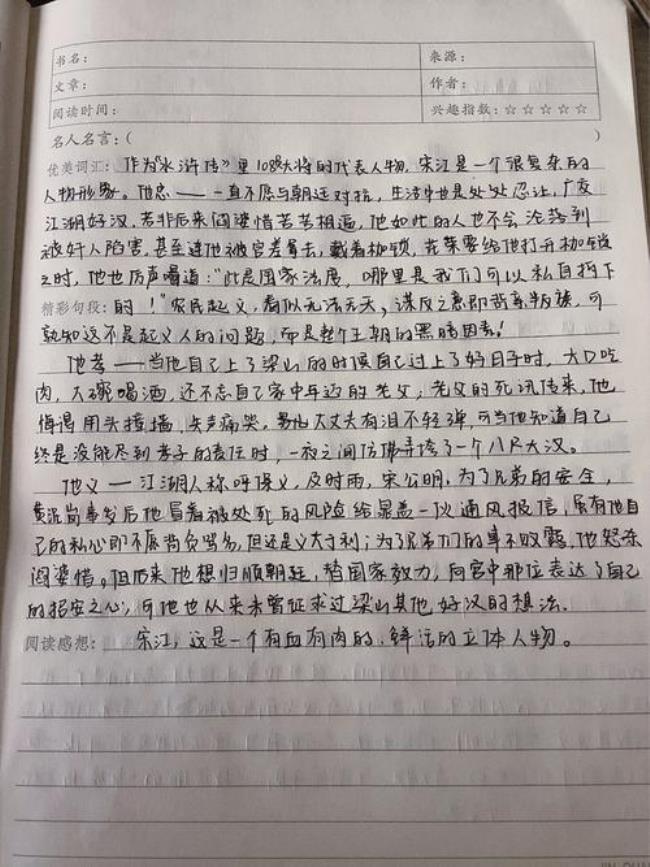 书名：
来源：
文章：
作者：
阅读时间：
兴趣指数：☆☆☆☆☆
名人名言：（ ）
优美词汇：作为《水浒传》里108大将的代表人物，宋江是一个很复杂的
人物形象。他忠——一直不愿与朝廷对抗，生活中也是处处忍让，广交
江湖好汉，若非后来阎婆惜苦苦相逼，他如此的人也不会沦落到
被奸人陷害，甚至连他被官差带去，戴着枷锁，花荣要给他打开枷锁
之时，他也厉声喝道："此是国家法度，哪里是我们可以私自拆下
精彩句段：的！"农民起义，看似无法无天，谋反之意即背弃叛族，可
孰知这不是起义人的问题，而是整个王朝的黑暗因素！
他孝——当他自己上了梁山的时候自己过上了好日子时，大口吃
肉，大碗喝酒，还不忘自己家中年迈的老父；老父的死讯传来，他
悔得用头撞墙，失声痛哭，男儿大丈夫有泪不轻弹，可当他知道自己
终是没能尽到孝子的责任时，一夜之间仿佛弄垮了一个八尺大汉。
他义——江湖人称呼保义，及时雨，宋公明，为了兄弟的安全，
黄泥岗事发后他冒着被处死的风险给晁盖一伙通风报信，虽有他自
己的私心即不愿背负骂名，但还是义大于利；为了兄弟们的事不败露，他怒杀
阎婆惜。但后来他想归顺朝廷，替国家效力，向宫中那位表达了自己
的招安之心，可他也从来未曾征求过梁山其他好汉的想法．
阅读感想： 宋江，这是一个有血有肉的，鲜活的立体人物。